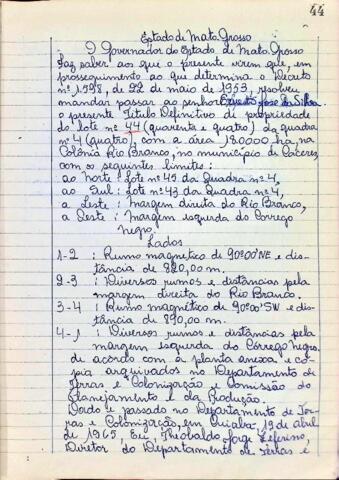 44
Estado de Mato Grosso
O Governador do Estado de Mato Grosso
Faz saber aos que o presente virem que, em
prosseguimento ao que determina o Decreto
nº 1.598, de 22 de maio de 1953, resolveu
mandar passar ao senhor Ernesto José da Silva
o presente Título Definitivo de propriedade
do lote nº 44 (quarenta e quatro) da quadra
nº 4 (quatro), com a área 18.0000 ha, na
Colônia Rio Branco, no município de Cáceres,
com os seguintes limites:
ao Norte: Lote nº 45 da Quadra nº 4,
ao Sul: Lote nº 43 da Quadra nº 4,
a Leste: Margem direita do Rio Branco,
a Oeste: Margem esquerda do Corrego
Negro.
Lados
1-2: Rumo magnético de 90º00'NE e dis-
tância de 820,00 m.
2-3: Diversos rumos e distâncias pela
margem direita do Rio Branco.
3-4: Rumo magnético de 90º00'SW e dis-
tância de 890,00 m.
4-1: Diversos rumos e distâncias pela
margem esquerda do Córrego Negro,
de acordo com a planta anexa e có-
pia arquivados no Departamento de
Terras e Colonização e Comissão do
Planejamento e da Produção.
Dado e passado no Departamento de Ter-
ras e Colonização, em Cuiabá, 19 de Abril
de 1965, Eu, Theobaldo Jorge Zeferino,
Diretor do Departamento de Terras e